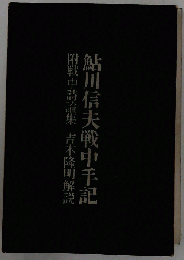 鮎川信夫戦中手記
附戦中詩論集 吉本隆明解説